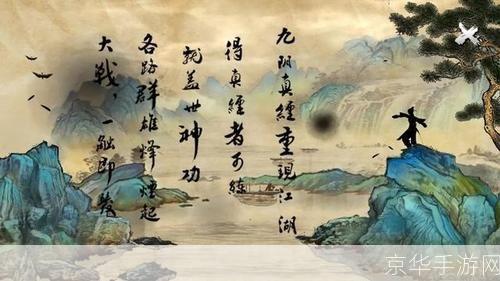 九阴真經重現江湖
得真經者可練
就盖世神功
各路群雄烽煙起
大戰，一触即發
京华手游网